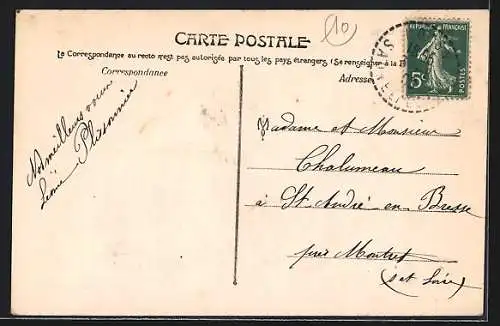 10
CARTE POSTALE
La Correspondance au recto n'est pas autorisée par tous les pays étrangers (Se renseigner à la
Correspondance
Adresse
REPUBLIQUE FRANÇAISE
5c
POSTES
Nos meilleurs vœux
Léonie Plasonnier
Madame et Monsieur
Chalumeau
à St André en Bresse
près Montret
(s et Loire)